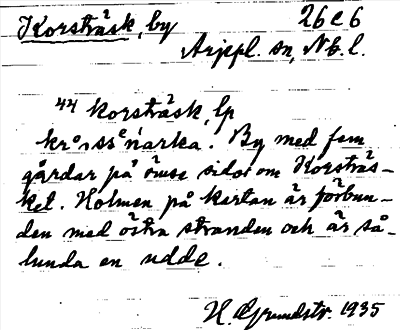 Korsträsk, by 26 C 6
Arjepl. sn, Nb. l.
44 korsträsk, lp
By med fem
gårdar på ömse sidor om Korsträs-
ket. Holmen på kartan är förbun-
den med östra stranden och är så-
lunda en udde.
H. Grundstr. 1935